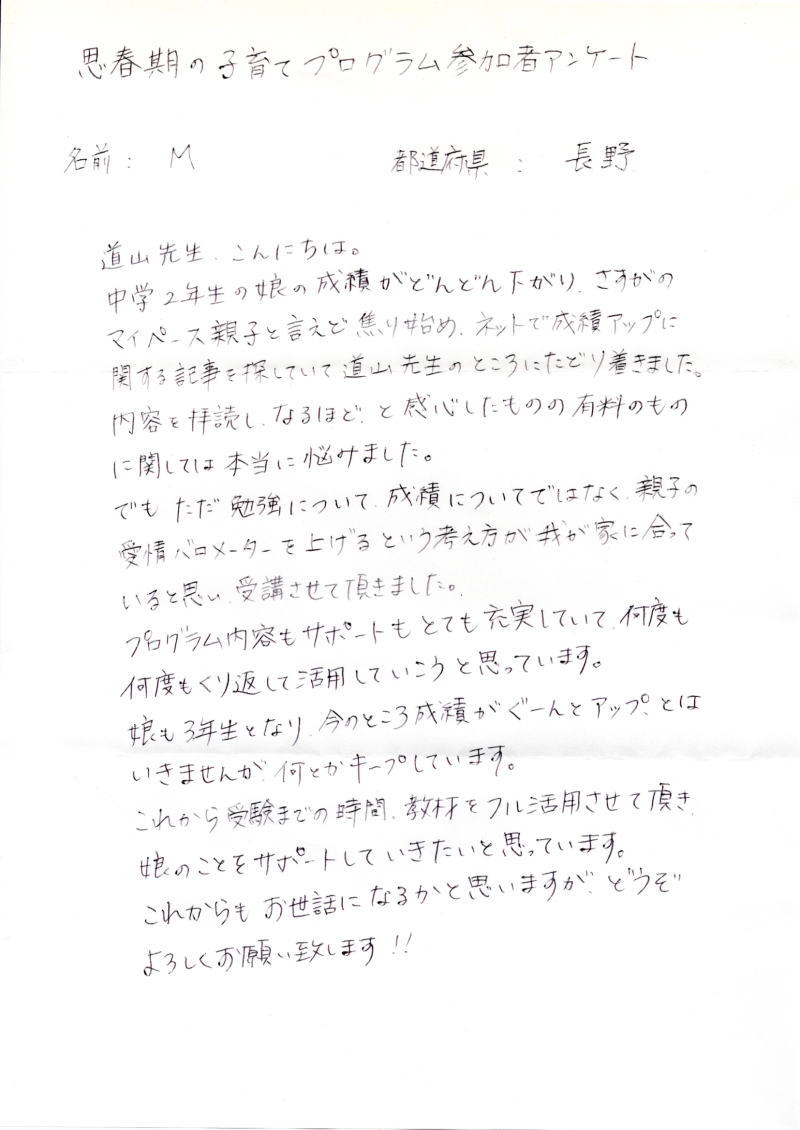 思春期の子育てプログラム参加者アンケート
名前: M 都道府県: 長野
道山先生、こんにちは。
中学2年生の娘の成績がどんどん下がり、さすがの
マイペース親子と言えど焦り始め、ネットで成績アップに
関する記事を探していて道山先生のところにたどり着きました。
内容を拝読し、なるほど、と感心したものの有料のもの
に関しては本当に悩みました。
でもただ勉強について、成績についてではなく、親子の
愛情バロメーターを上げるという考え方が我が家に合って
いると思い、受講させて頂きました。
プログラム内容もサポートもとても充実していて、何度も
何度もくり返して活用していこうと思っています。
娘も3年生となり、今のところ成績がぐーんとアップ、とは
いきませんが、何とかキープしています。
これから受験までの時間、教材をフル活用させて頂き、
娘のことをサポートしていきたいと思っています。
これからもお世話になるかと思いますが、どうぞ
よろしくお願い致します!!